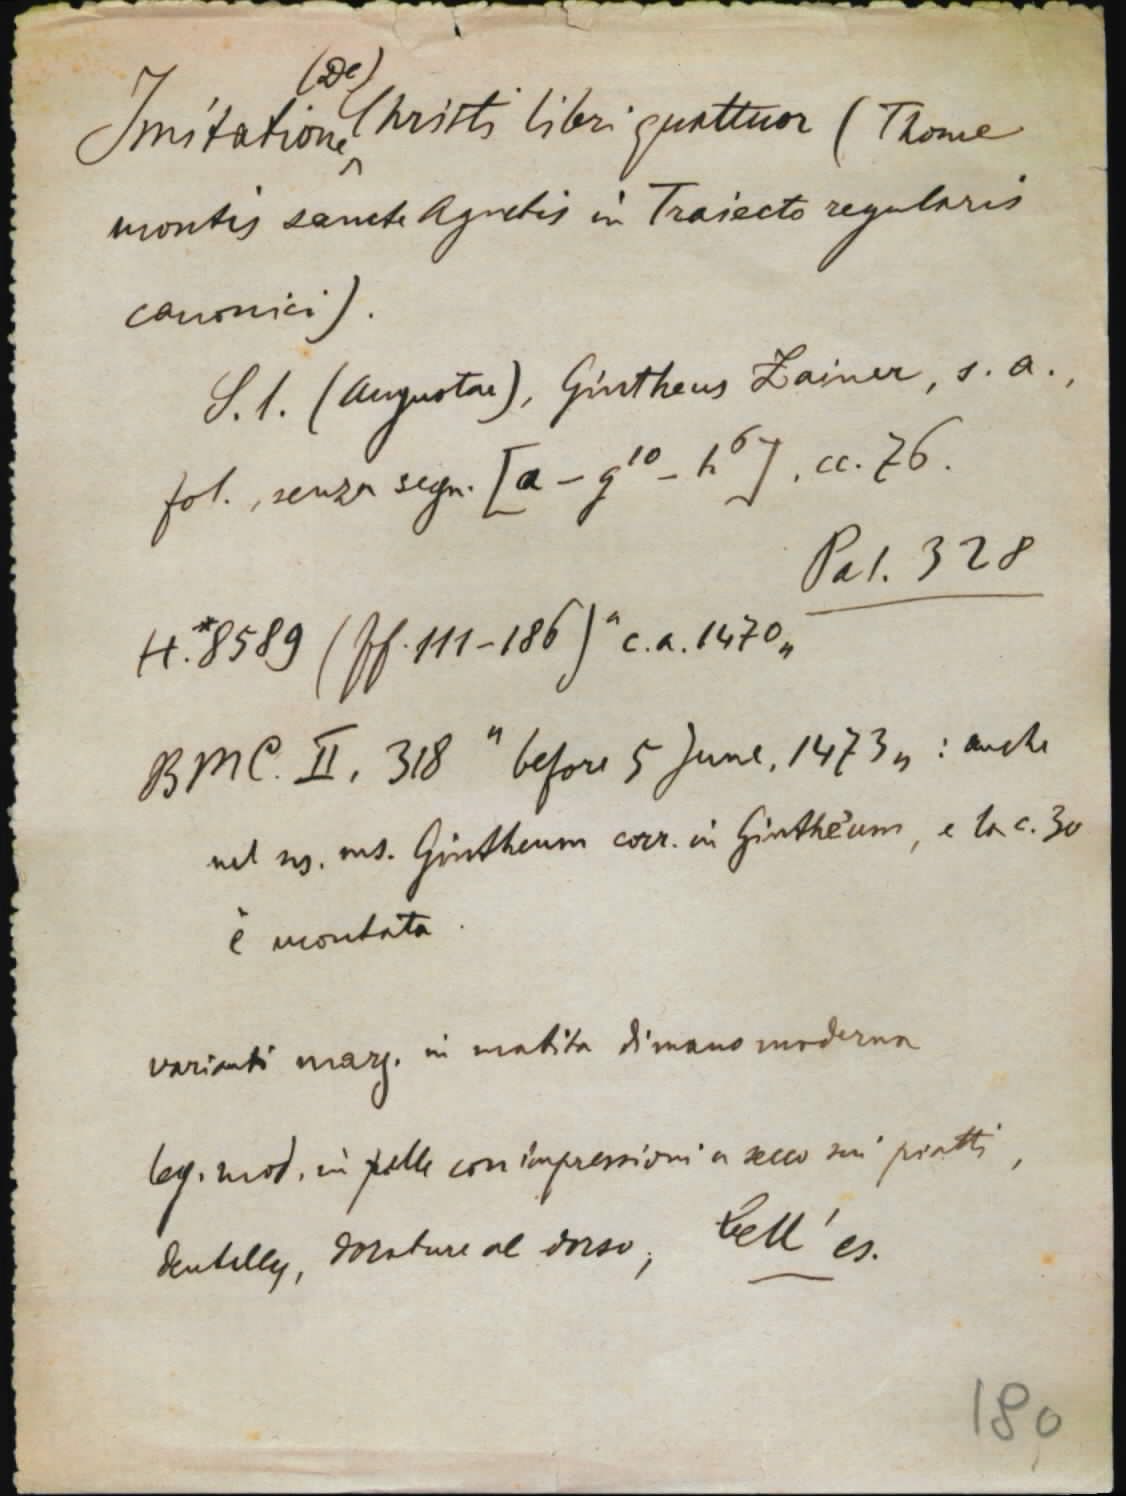 Imitatione (De) Christi libri quattuor (Thome
montis sancte Agnetis in Traiecto regularis
canonici).
S. l. (Augustae), Gintheus Zainer, s. a.,
fol., senza segn. [a - g¹⁰ - h⁶], cc. 76.
Pal. 328
H. *8589 (ff. 111-186) "c. a. 1470„
BMC. II, 318 "before 5 June, 1473„ : anche
nel ns. ms. Gintheum corr. in Ginthēum, e la c. 30
è montata.
varianti marg. in matita di mano moderna
leg. mod. in pelle con impressioni a secco sui piatti,
dentelles, dorature al dorso; bell' es.
180